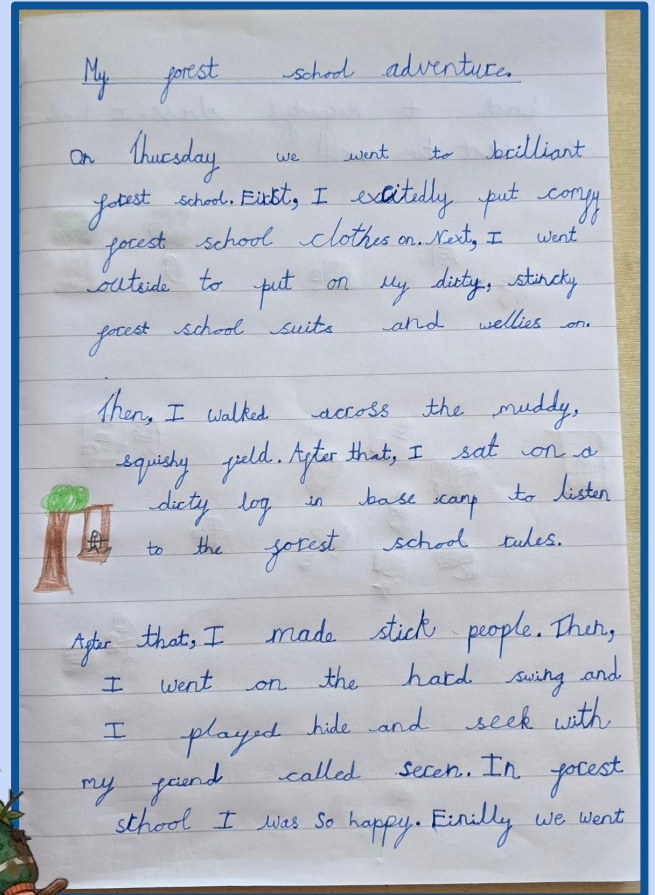 My forest school adventure.
On Thursday we went to brilliant
forest school. First, I excitedly put comfy
forest school clothes on. Next, I went
outside to put on my dirty, stincky
forest school suits and wellies on.
Then, I walked across the muddy,
squishy field. After that, I sat on a
dirty log in base camp to listen
to the forest school rules.
After that, I made stick people. Then,
I went on the hard swing and
I played hide and seek with
my friend called In forest
school I was so happy. Finilly we went